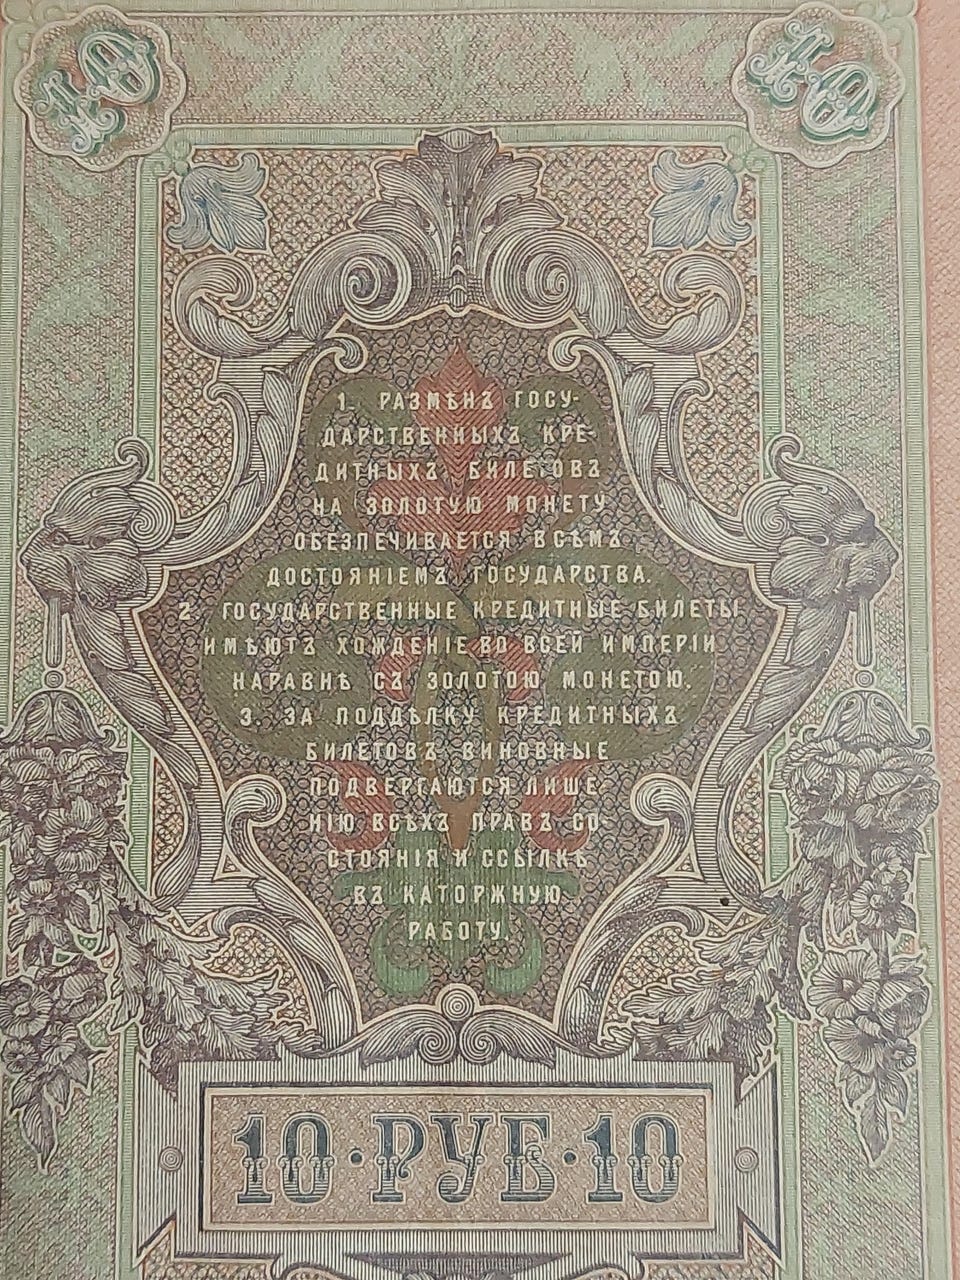 10 10
1. РАЗМѢНЪ ГОСУ-
ДАРСТВЕННЫХЪ КРЕ-
ДИТНЫХЪ БИЛЕТОВЪ
НА ЗОЛОТУЮ МОНЕТУ
ОБЕЗПЕЧИВАЕТСЯ ВСѢМЪ
ДОСТОЯНІЕМЪ ГОСУДАРСТВА.
2. ГОСУДАРСТВЕННЫЕ КРЕДИТНЫЕ БИЛЕТЫ
ИМѢЮТЪ ХОЖДЕНІЕ ВО ВСЕЙ ИМПЕРІИ
НАРАВНѢ СЪ ЗОЛОТОЮ МОНЕТОЮ.
3. ЗА ПОДДѢЛКУ КРЕДИТНЫХЪ
БИЛЕТОВЪ ВИНОВНЫЕ
ПОДВЕРГАЮТСЯ ЛИШЕ
НІЮ ВСѢХЪ ПРАВЪ СО
СТОЯНІЯ И ССЫЛКѢ
ВЪ КАТОРЖНУЮ
РАБОТУ.
10·РУБ·10